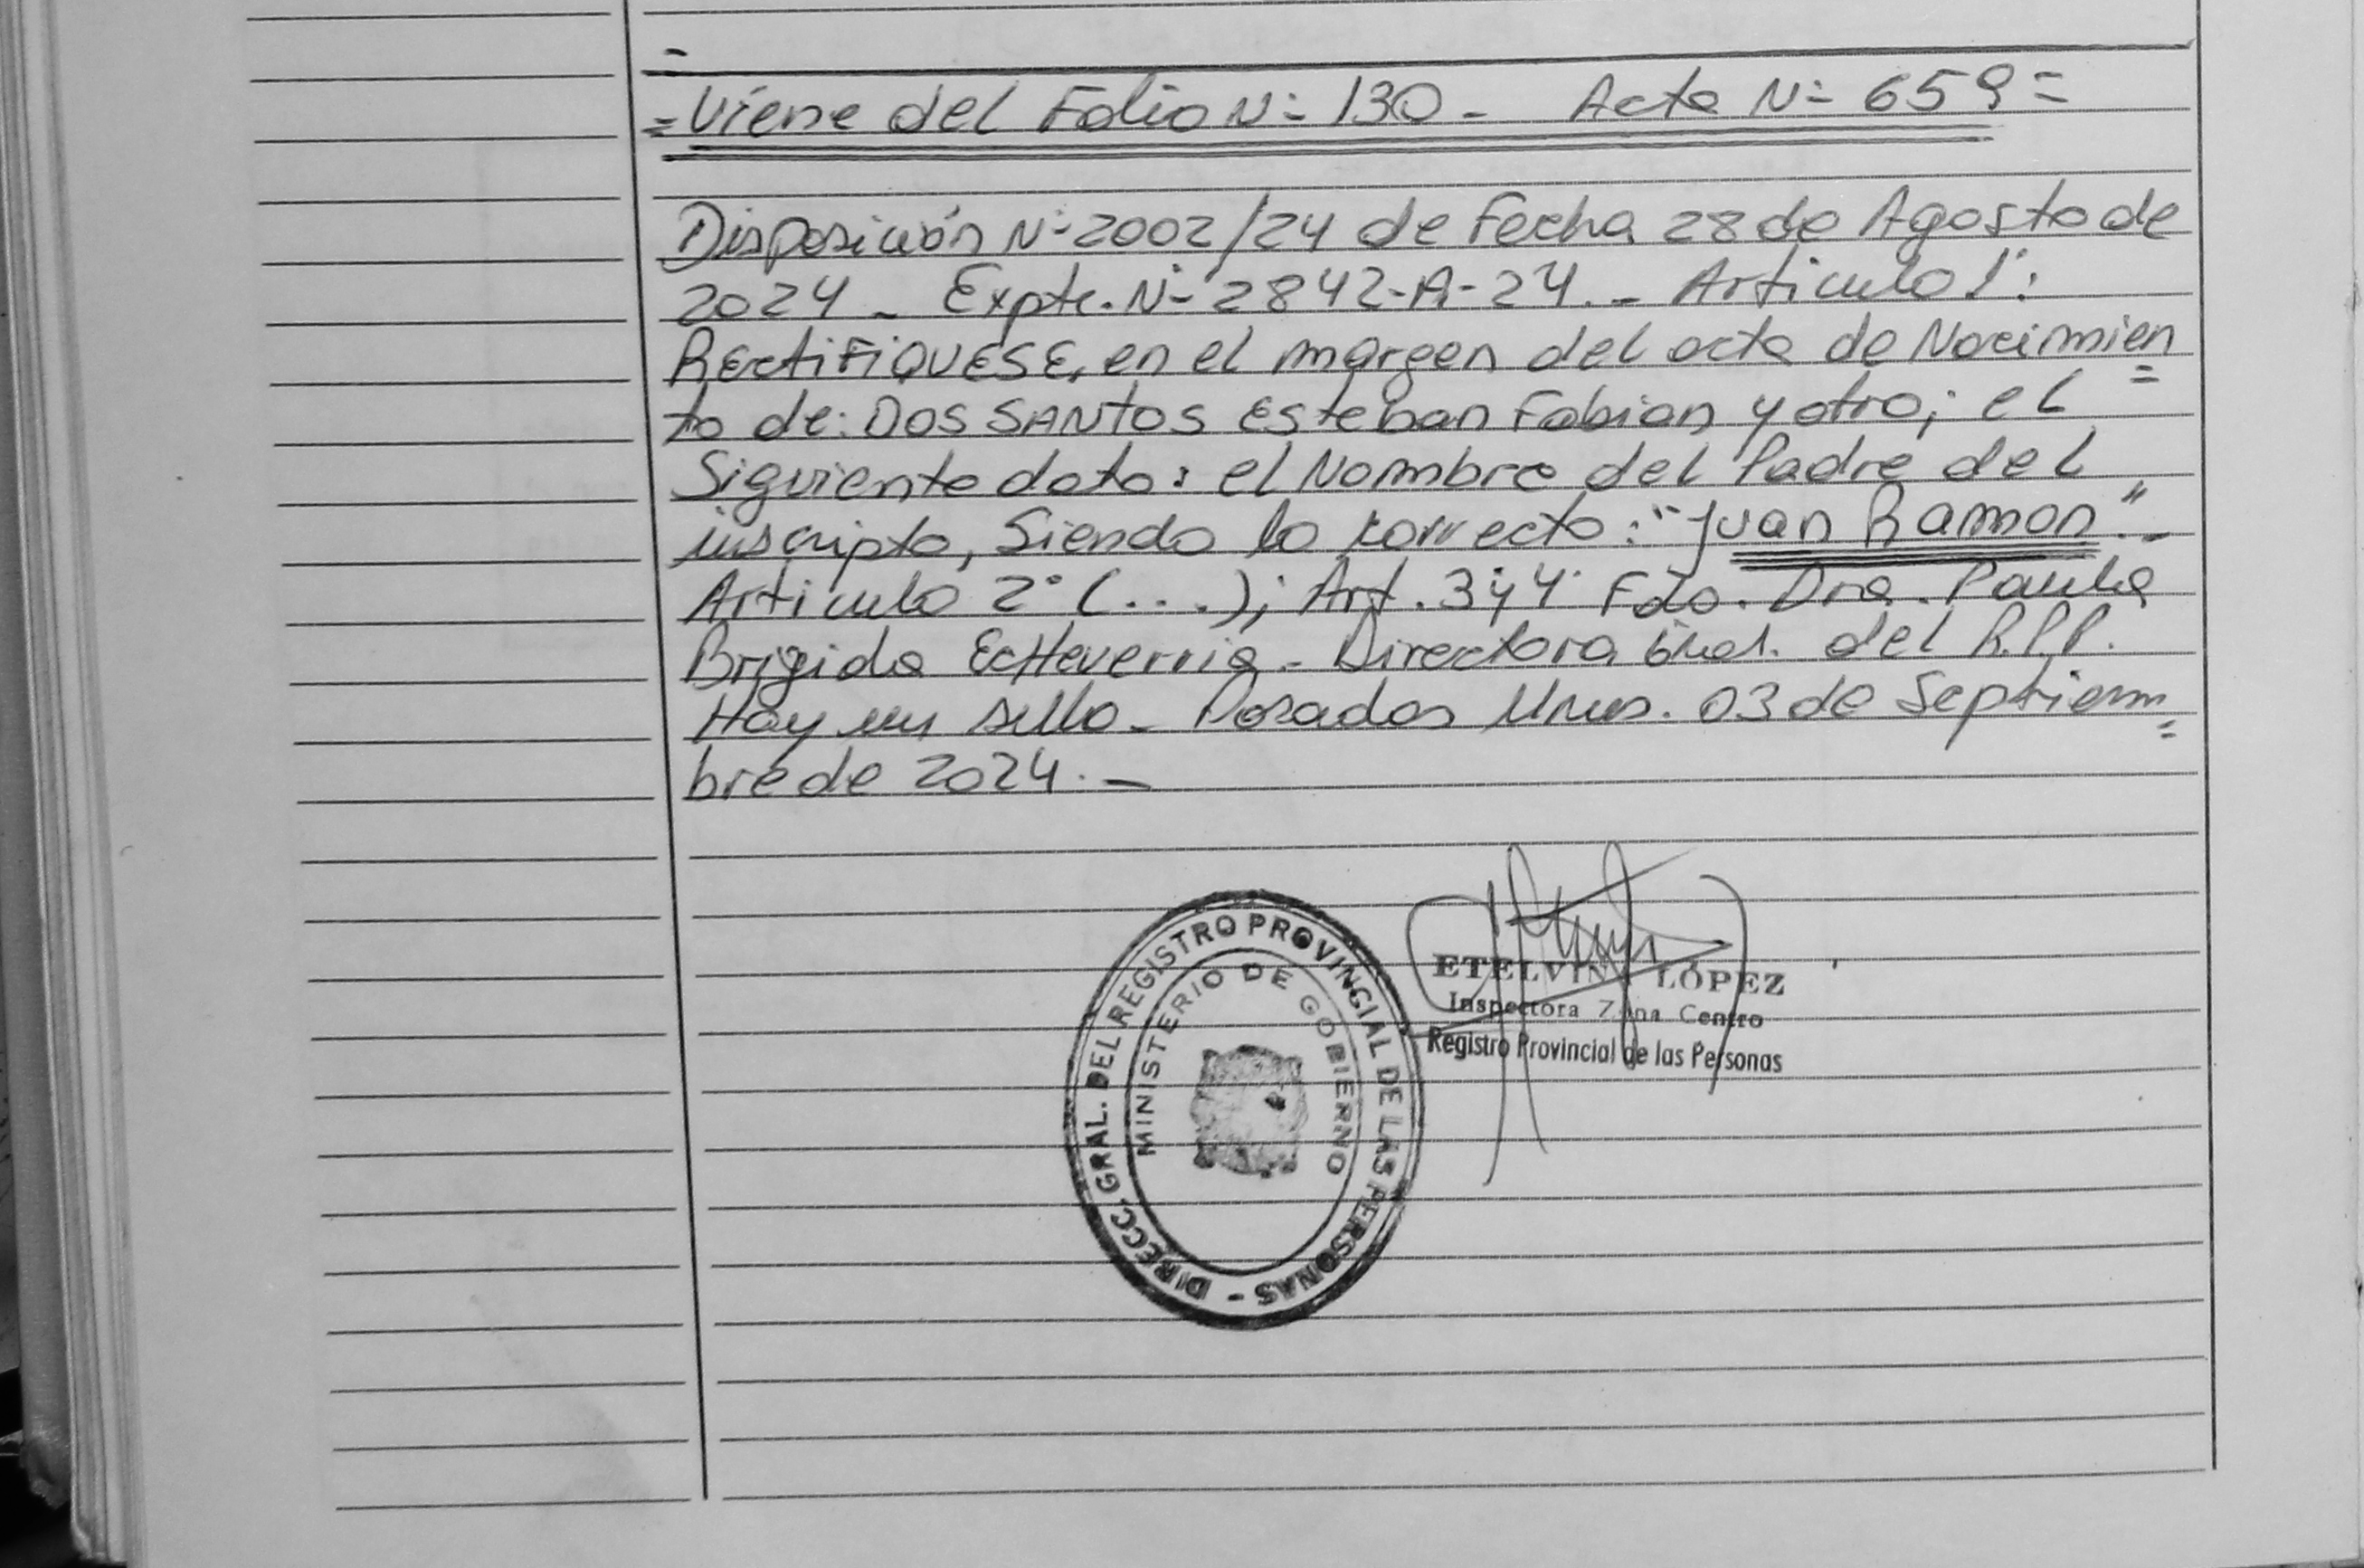 = Viene del Folio Nº 130 - Acta Nº 659 =
Disposición Nº 2002/24 de Fecha 28 de Agosto de
2024 - Expte. Nº 2842-A-24. - Articulo 1º:
RECtiFiQUESE, en el margen del acta de Nacimien
=
to de: DOS SANtOS Esteban Fabian y otro; el
Siguiente dato: el Nombre del Padre del
inscripto, Siendo lo correcto: "Juan Ramon".-
Articulo 2º (...); Art. 3 y 4º Fdo. Dra. Paula
Brigida Echeverria - Directora Gral. del R.P.P.
Hay un sello - Posadas Mnes. 03 de Septiem
=
bre de 2024. -
DIRECC. GRAL. DEL REGISTRO PROVINCIAL DE LAS PERSONAS -
MINISTERIO DE GOBIERNO
ETELVINA LÓPEZ
Inspectora Zona Centro
Registro Provincial de las Personas